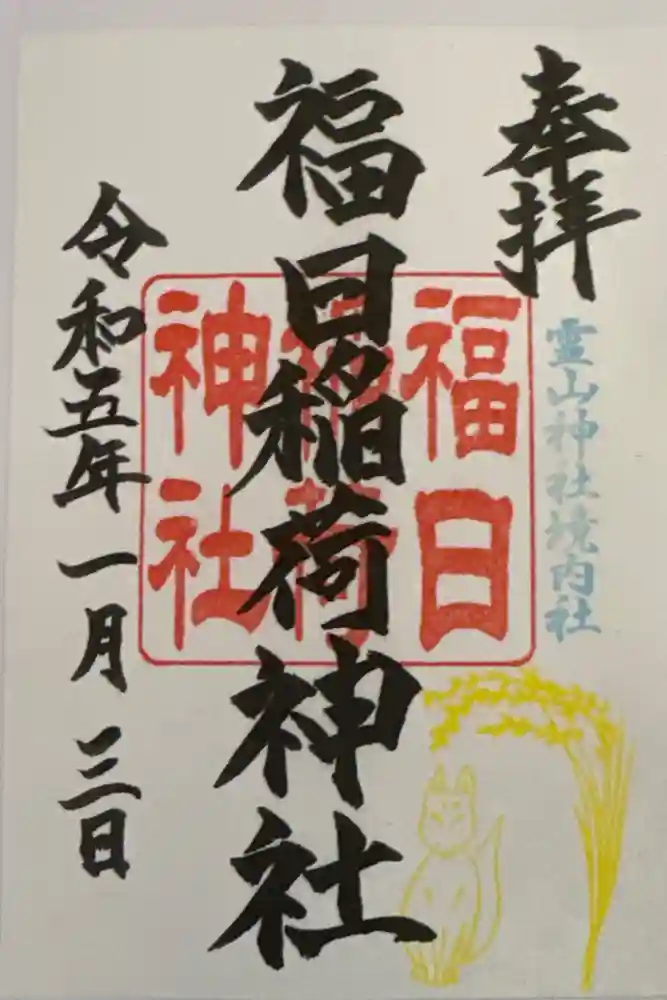 奉拝
霊山神社境内社
福日稲荷神社
福日
稲荷
神社
令和五年一月三日